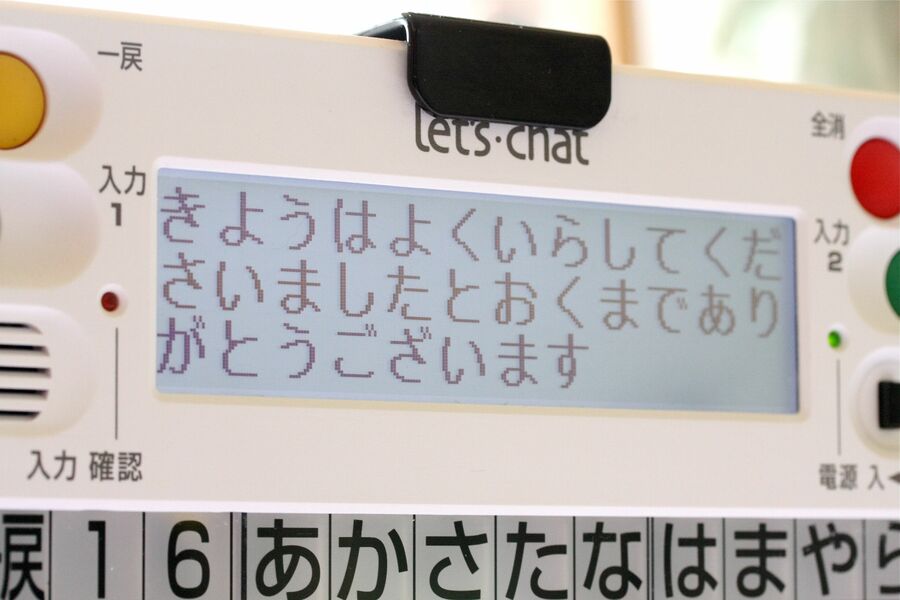 一戻
全消
let's·chat
入力
1
入力
2
きようはよくいらしてくだ
さいましたとおくまであり
がとうございます
入力 確認
電源 入
戻 1 6 あ か さ た な は ま や ら